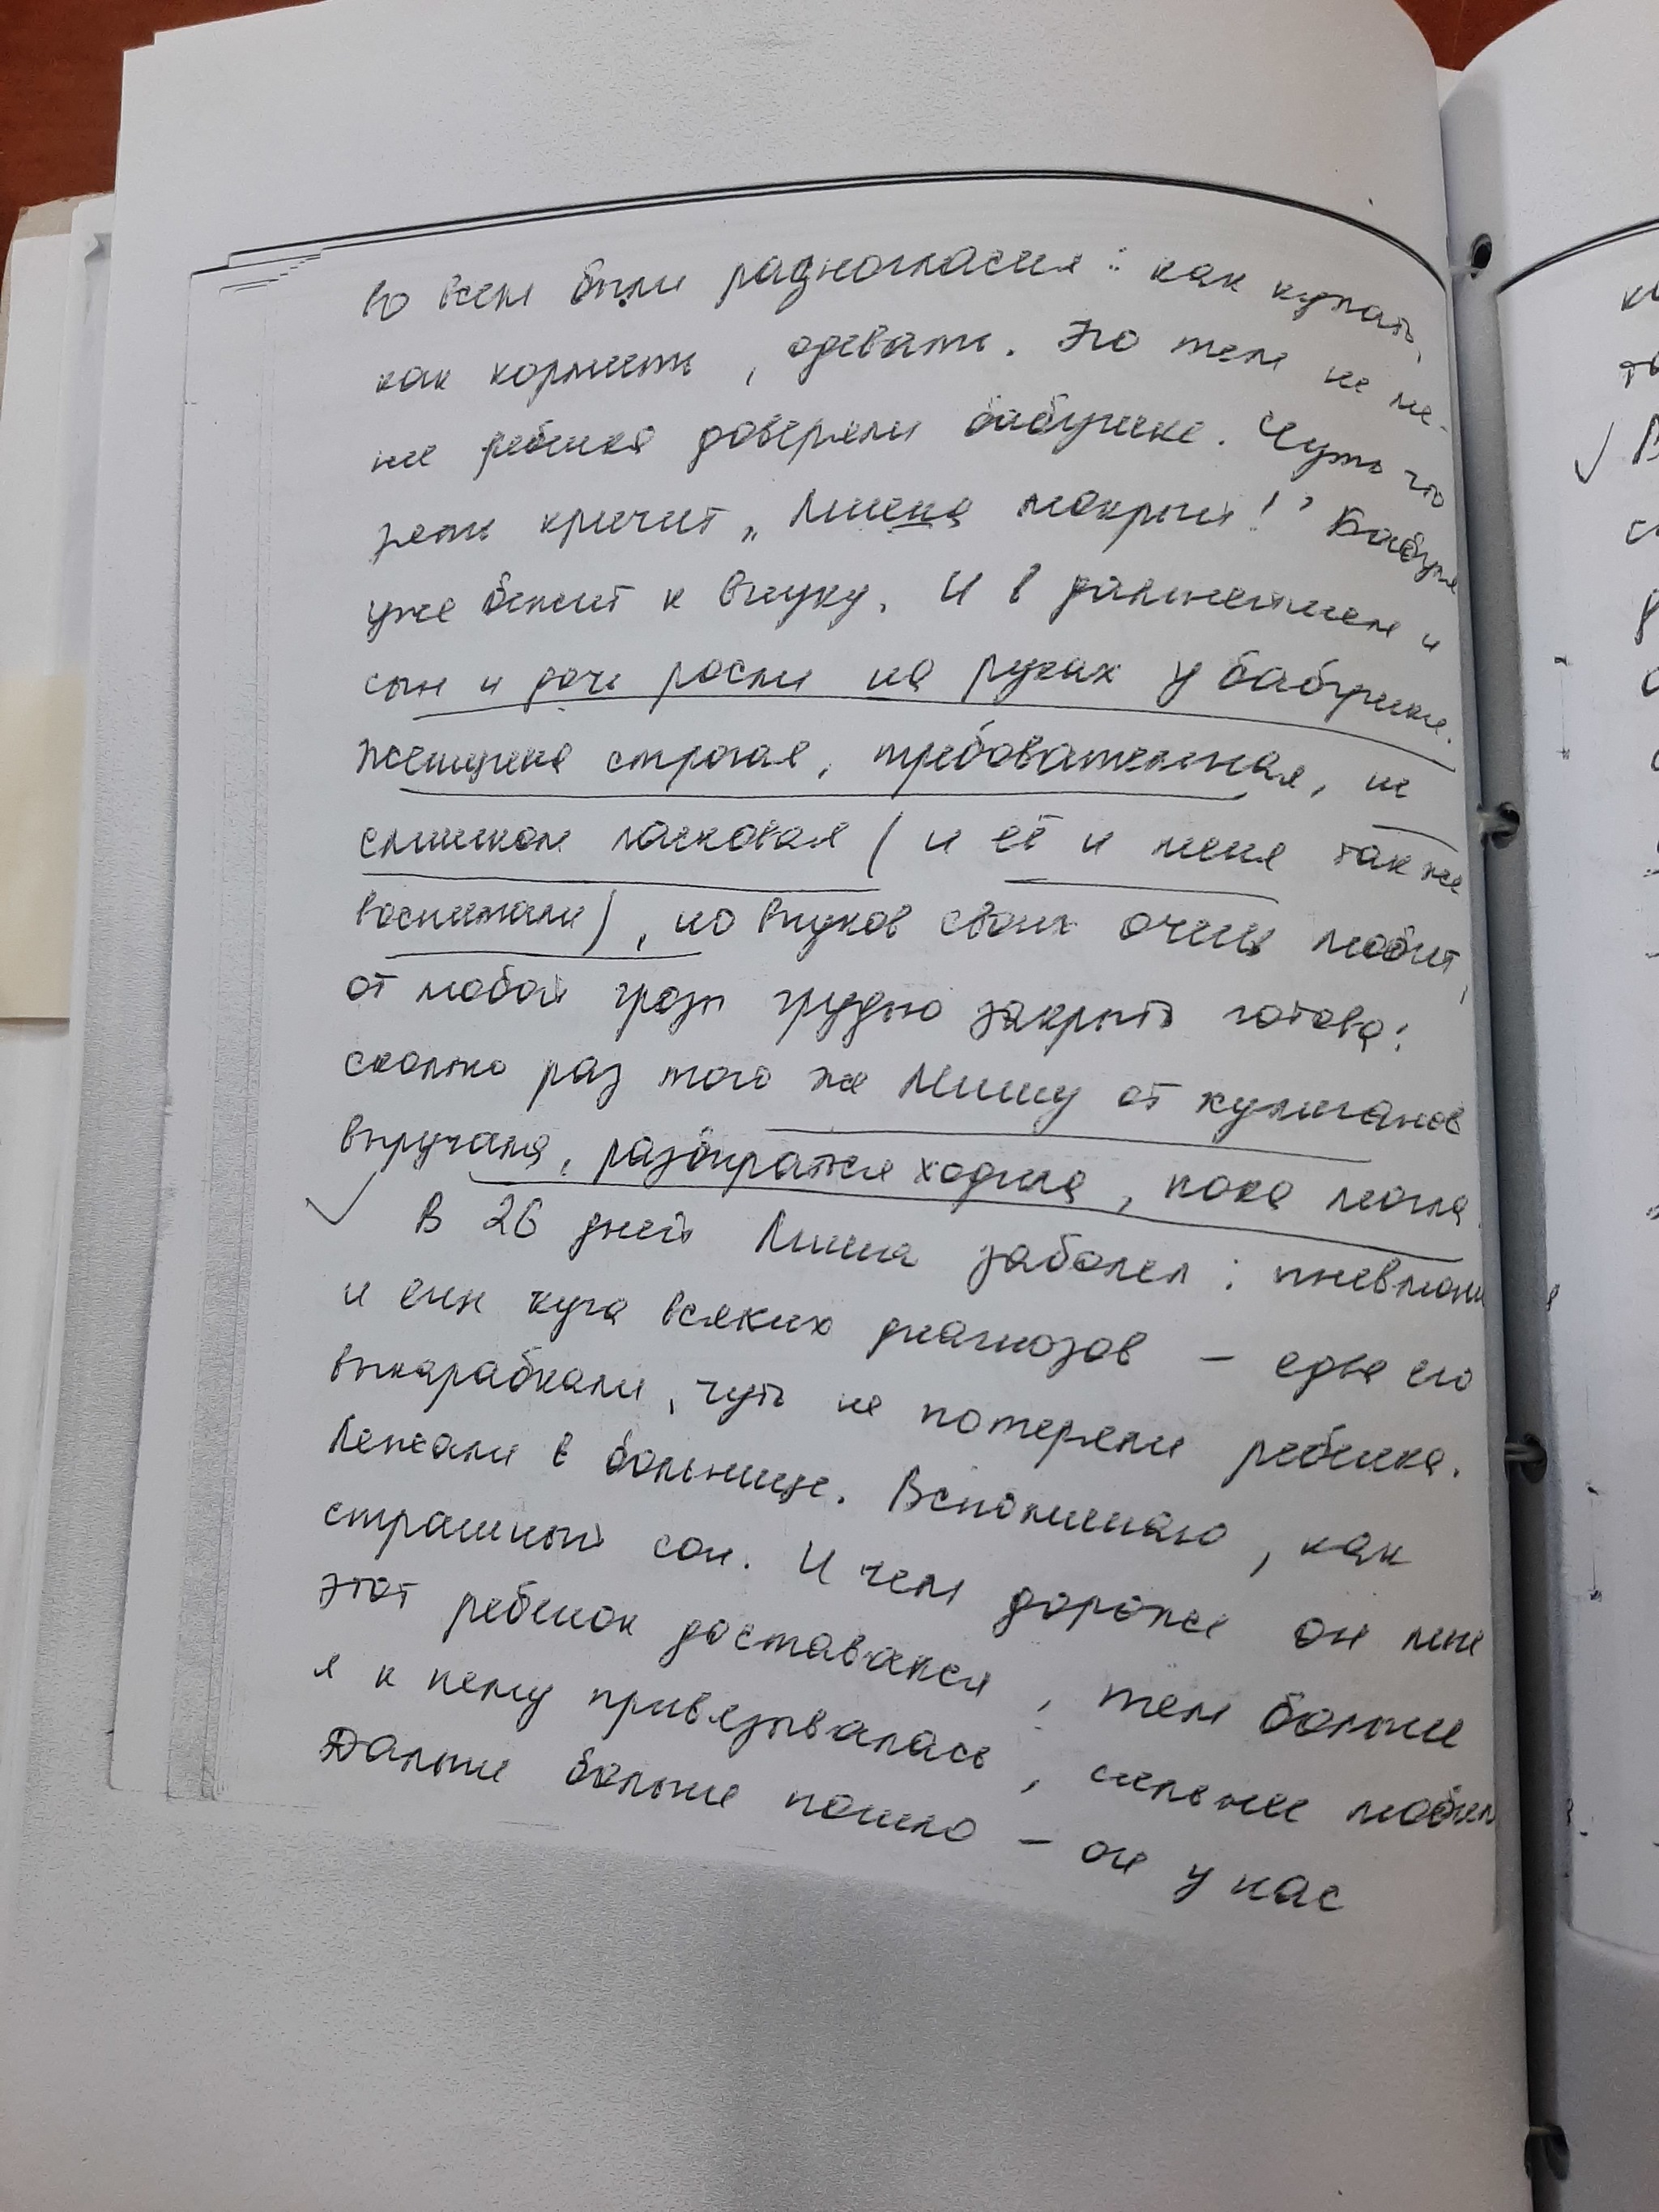 Во всем были разногласия: как купать,
как кормить, одевать. Но тем не ме-
нее ребенка доверяли бабушке. Чуть что
зять кричит „Мишка мокрый!" Бабуля
уже бежит к внуку. И в дальнейшем и
сын и дочь росли на руках у бабушки.
Женщина строгая, требовательная, не
слишком ласковая (и её и меня так же
воспитали), но внуков своих очень любит,
от любой грозы грудью закрыть готова:
сколько раз того же Мишу от хулиганов
выручала, разбираться ходила, пока могла.
В 26 дней Миша заболел: пневмония
и еще куча всяких диагнозов – едва его
выкарабкали, чуть не потеряли ребенка.
Лежали в больнице. Вспоминаю, как
страшный сон. И чем дороже он мне
этот ребенок доставался, тем больше
я к нему привязывалась, сильнее любила
Дальше больше пошло – он у нас